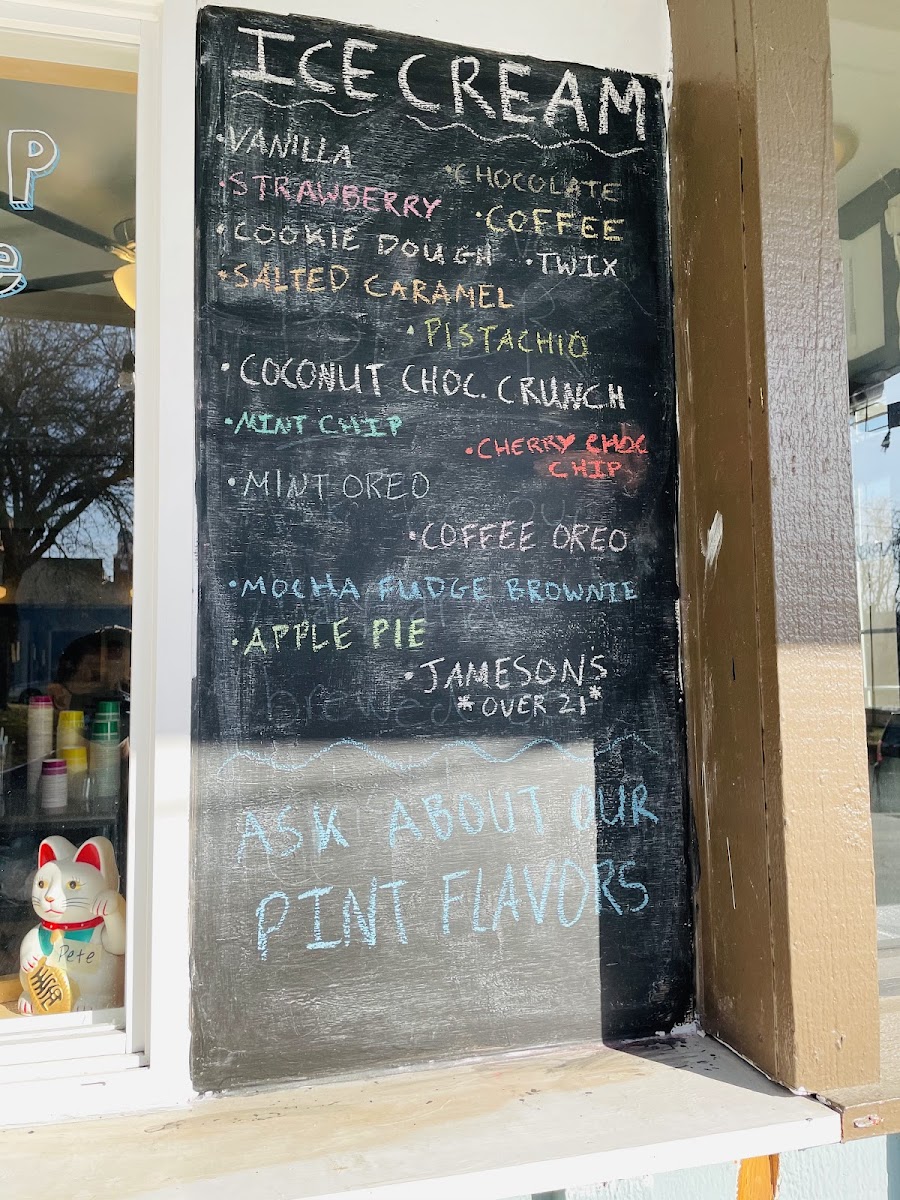 ICE CREAM
•VANILLA
•CHOCOLATE
•STRAWBERRY
•COFFEE
•COOKIE DOUGH
•TWIX
•SALTED CARAMEL
•PISTACHIO
•COCONUT CHOC. CRUNCH
•MINT CHIP
•CHERRY CHOC
CHIP
•MINT OREO
•COFFEE OREO
•MOCHA FUDGE BROWNIE
•APPLE PIE
•JAMESON'S
*OVER 21*
ASK ABOUT OUR
PINT FLAVORS
P
e
Pete